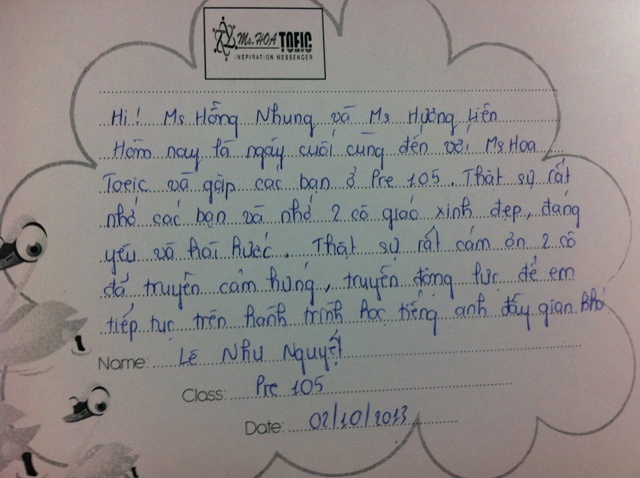 Ms. HOA TOEIC
INSPIRATION MESSENGER
Hi! Ms Hồng Nhung và Ms Hương Liên
Hôm nay là ngày cuối cùng đến với Ms Hoa
Toeic và gặp các bạn ở Pre 105. Thật sự rất
nhớ các bạn và nhớ 2 cô giáo xinh đẹp, đáng
yêu và hài hước. Thật sự rất cám ơn 2 cô
đã truyền cảm hứng, truyền động lực để em
tiếp tục trên hành trình học tiếng anh đầy gian khó
Name: Lê Như Nguyệt
Class: Pre 105
Date: 02/10/2013